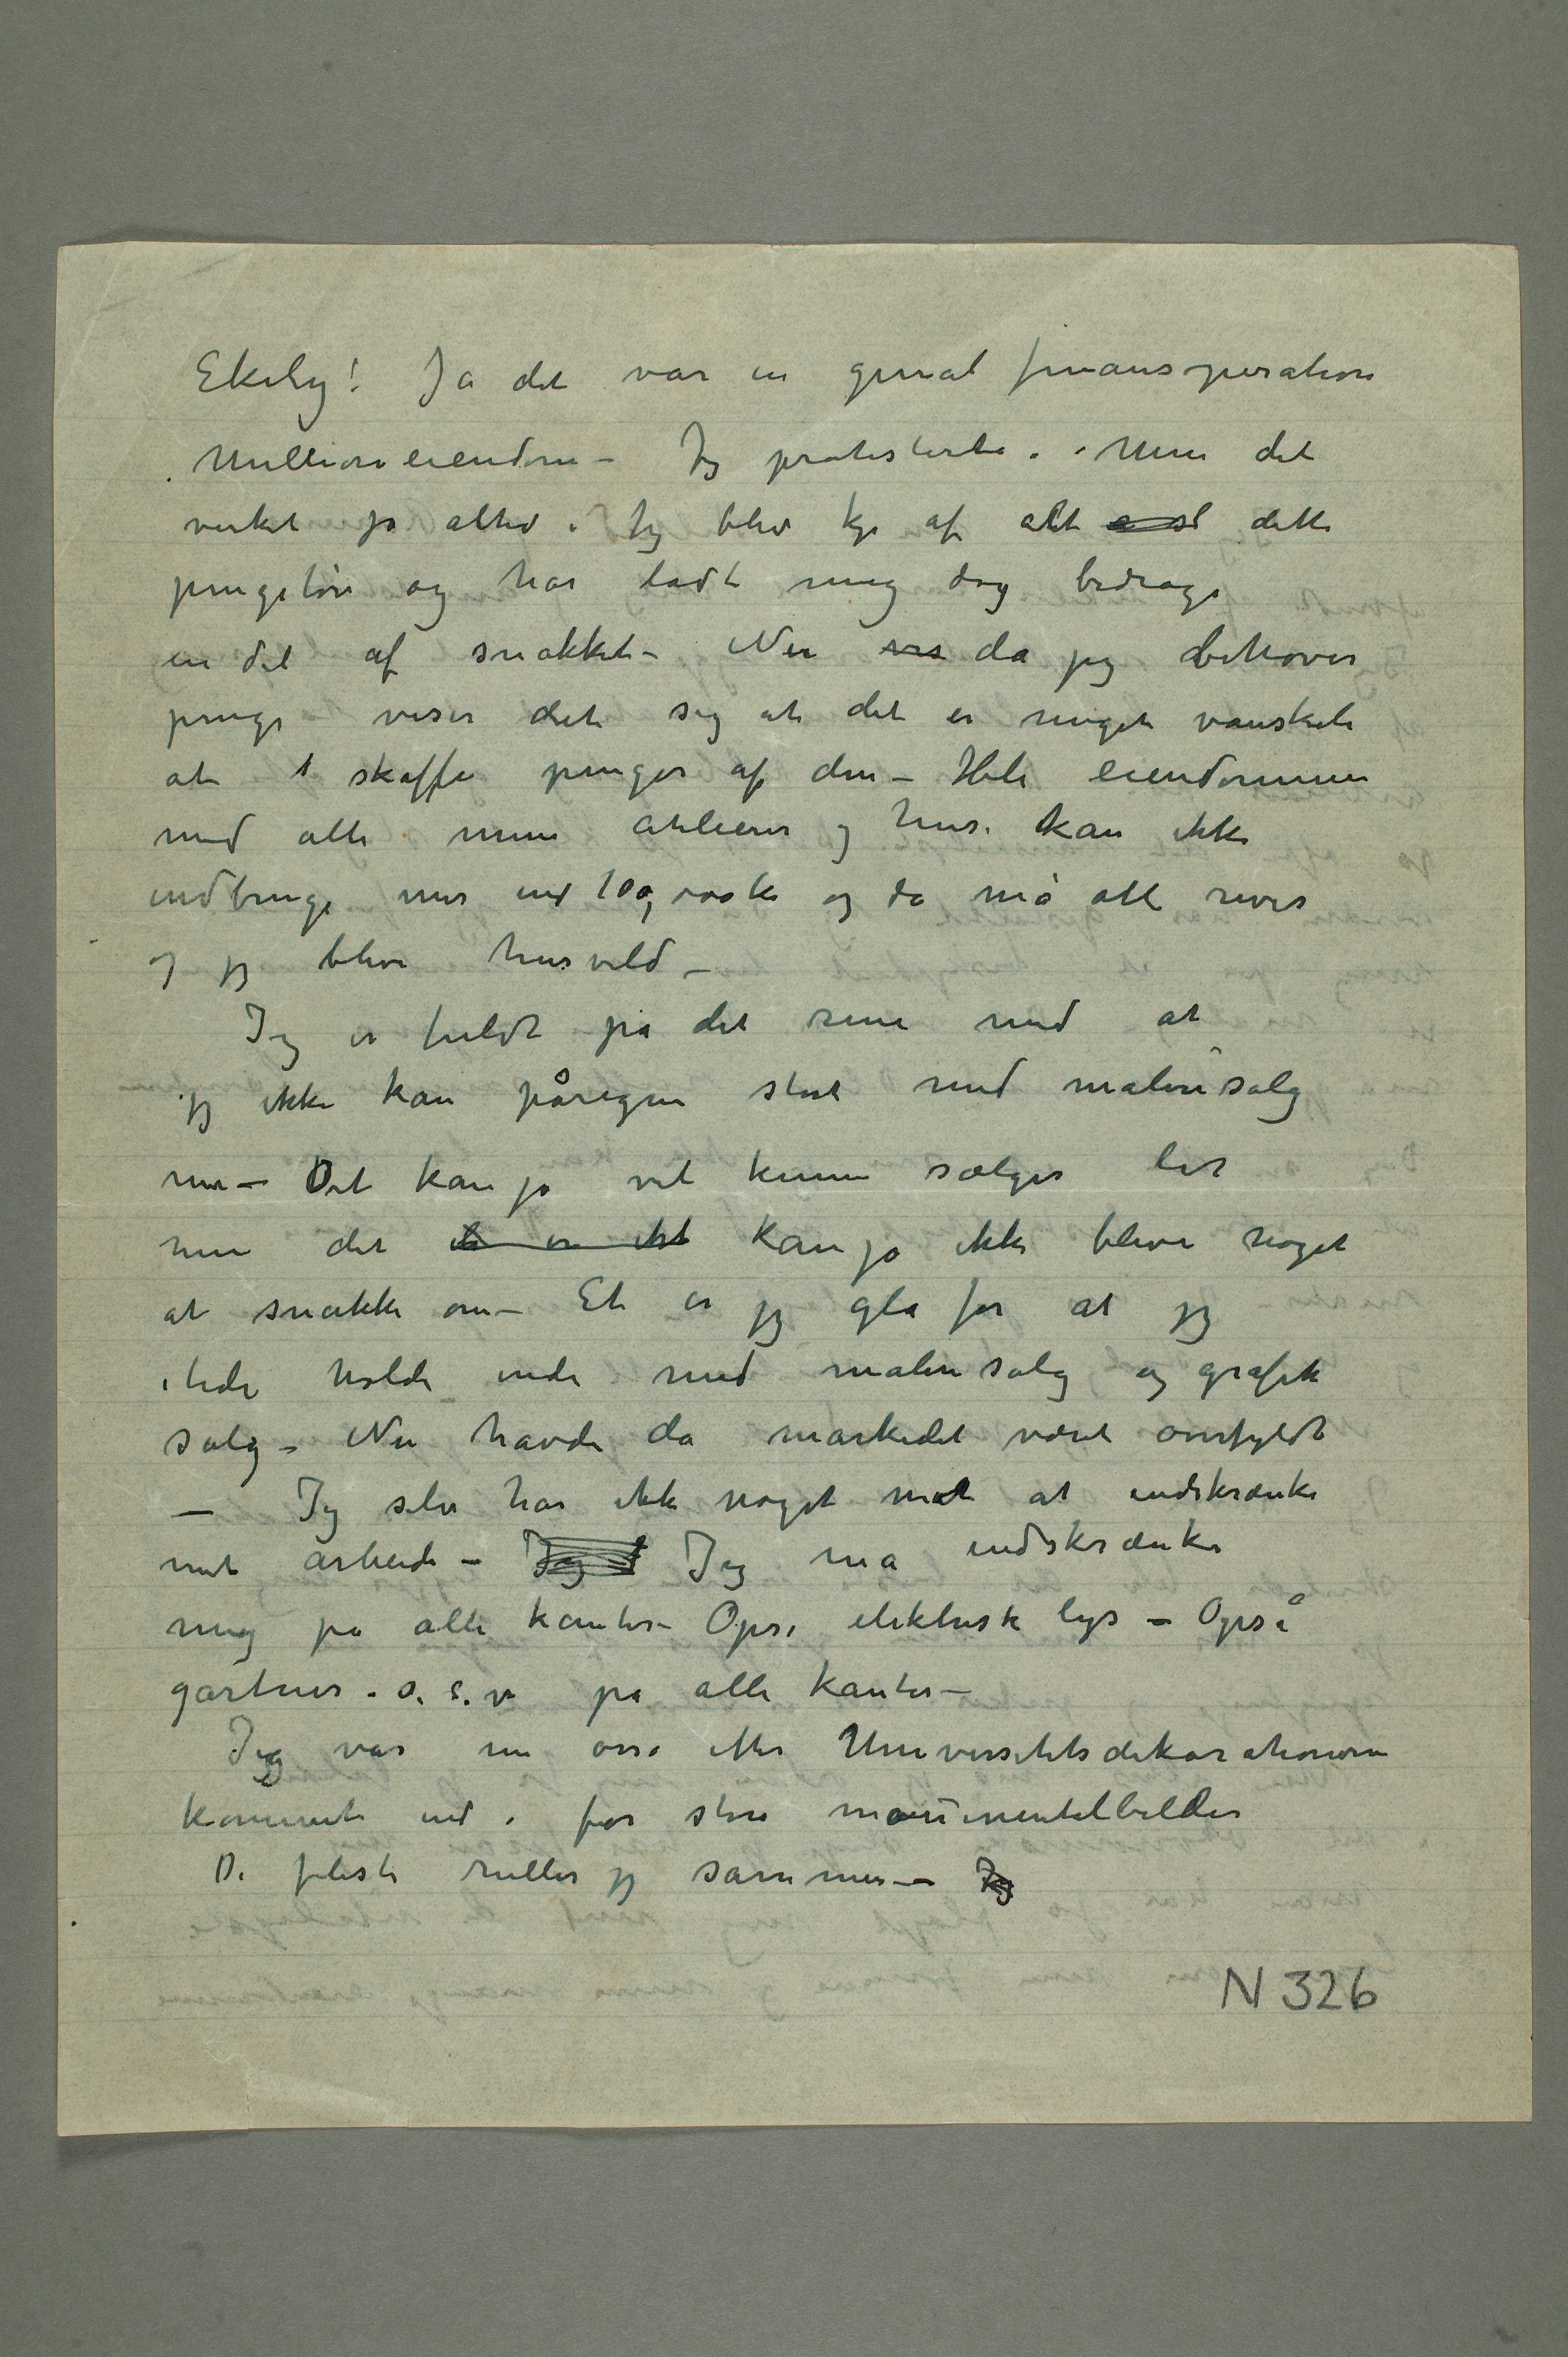 Ekely! Ja det var en genial finansoperation
Millioneiendom – Jeg protesterte. Men det
virket jo altid. Jeg blev kje af alt dette
pengetøv og har ladt mig dog bedrage
en del af snakket – Nu vis da jeg behøver
penge – viser det sig at det er meget vanskeli
at skaffe penger af den – Hele eiendommen
med alle mine atelierer og hus. kan ikke
indbringe mer end 100,000 kr og da må alt rives
og jeg blive husvild –
Jeg er fuldt på det rene med at
jeg ikke kan påregne stort med malerisalg
nu – Det kan jo vel kunne sælges lidt
men det er ikke kan jo ikke blive noget
at snakke om – Et er jeg gla for at jeg
i tide holdt inde med malerisalg og grafik
salg – Nu havde da markedet været overfyldt
– Jeg selv har ikke noget mot at indskrænke
mit arbeide – Jeg Jeg må indskrænke
mig på alle kanter – Også elektrisk lys – Også
gartner. o.s.v. på alle kanter –
Jeg var nu også efter Universitetsdekorationerne
kommet ind i for store monumentalbilder
De fleste ruller jeg sammen – Jeg
N 326